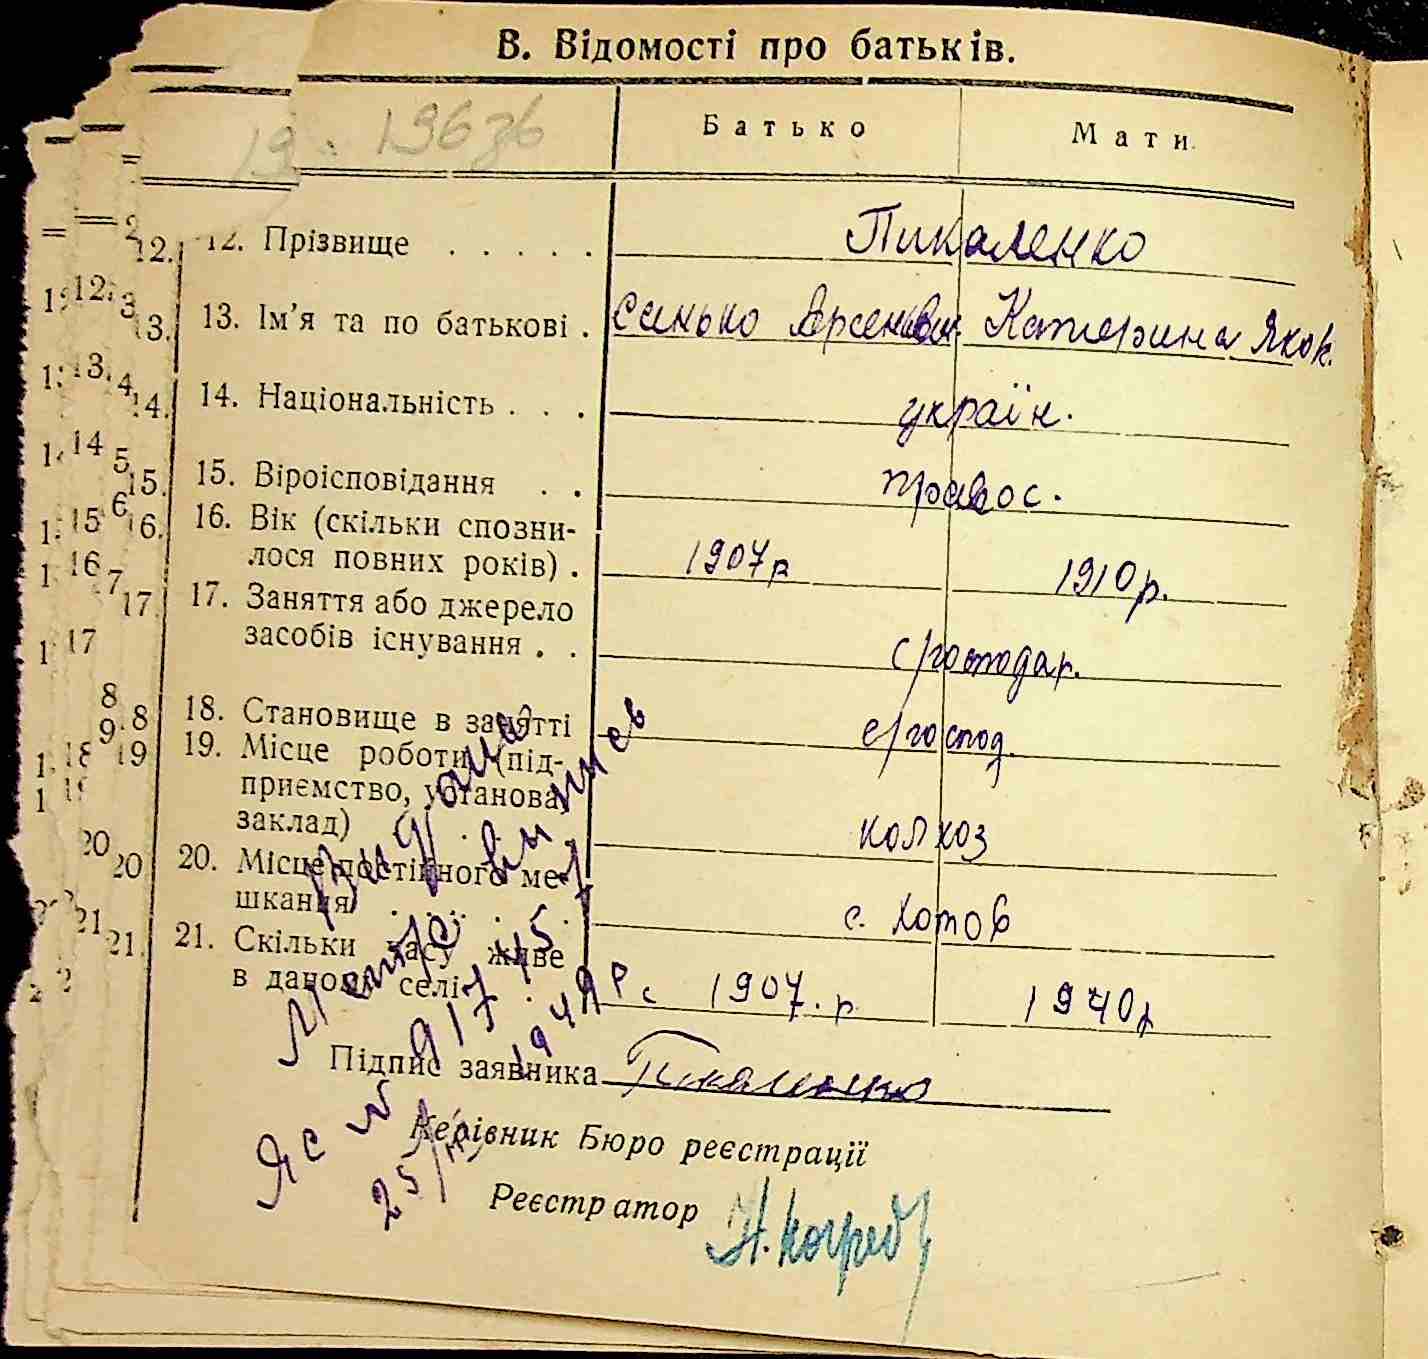 В. Відомості про батьків.
19. 1963 б
Батько Мати
12. Прізвище . . . . . Пикаленко
13. Ім'я та по батькові . Санько Арсенович Катерина Яков.
14. Національність . . . україн.
15. Віроісповідання . . правос.
16. Вік (скільки спозни-
лося повних років) . 1907 р 1910 р.
17. Заняття або джерело
засобів існування . . с/господар.
18. Становище в занятті с/господ.
19. Місце роботи (під-
приємство, установа,
заклад) колхоз
20. Місце постійного ме-
шкання с. Хотов
21. Скільки часу живе
в даному селі с 1907. р 1940 р
Підпис заявника Пикаленко
Керівник Бюро реєстрації
Реєстратор
Видано випис